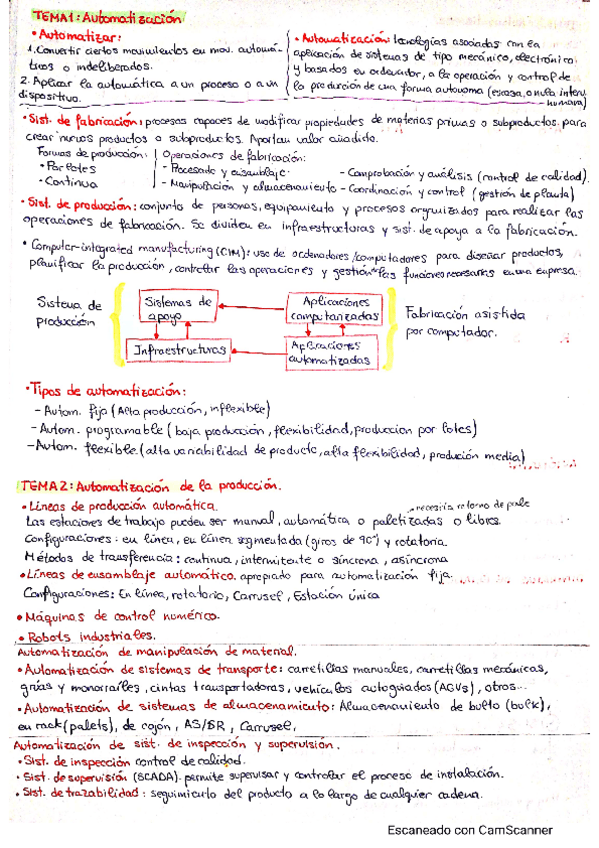 TEMA1: Automatización
• Automatizar:
1. Convertir ciertos movimientos en mov. automá-
ticos o indeliberados.
2. Aplicar la automática a un proceso o a un
dispositivo.
• Automatización: tecnologías asociadas con la
aplicación de sistemas de tipo mecánico, electrónico
y basados en ordenador, a la operación y control de
la producción de una forma autonoma (escasa o nula interv
humana)
• Sist. de fabricación: procesos capaces de modificar propiedades de materias primas o subproductos para
crear nuevos productos o subproductos. Aportan valor añadido.
Formas de producción:
• Por lotes
• Continua
Operaciones de fabricación:
- Procesado y ensamblaje
- Manipulación y almacenamiento
- Comprobación y análisis (control de calidad).
- Coordinación y control (gestión de planta)
• Sist. de producción: conjunto de personas, equipamiento y procesos organizados para realizar las
operaciones de fabricación. Se dividen en infraestructuras y sist. de apoyo a la fabricación.
• Computer-integrated manufacturing (CIM): uso de ordenadores/computadores para diseñar productos,
planificar la producción, controlar las operaciones y gestión de las funciones necesarias en una empresa.
Sistema de
producción
Sistemas de
apoyo
Infraestructuras
Aplicaciones
computarizadas
Aplicaciones
automatizadas
Fabricación asistida
por computador.
• Tipos de automatización:
- Autom. fija (Alta producción, inflexible)
- Autom. programable (baja producción, flexibilidad, produccion por lotes)
- Autom. flexible (alta variabilidad de producto, alta flexibilidad, produción media)
TEMA2: Automatización de la producción.
• Líneas de producción automática.
necesita retorno de palé
Las estaciones de trabajo pueden ser manual, automática o paletizadas o libres.
Configuraciones: en línea, en línea segmentada (giros de 90°) y rotatoria.
Métodos de transferencia: continua, intermitente o síncrona, asíncrona
• Líneas de ensamblaje automático. apropiado para automatización fija.
Configuraciones: En línea, rotatorio, Carrusel, Estación única
• Máquinas de control numérico.
• Robots industriales.
Automatización de manipulación de material.
• Automatización de sistemas de transporte: carretillas manuales, carretillas mecánicas,
grúas y monorraíles, cintas transportadoras, vehículos autoguiados (AGVs), otros...
• Automatización de sistemas de almacenamiento: Almacenamiento de bulto (bulk),
en rack (palets), de cajón, AS/SR, Carrusel,
Automatización de sist. de inspección y supervisión.
• Sist. de inspección control de calidad.
• Sist. de supervisión (SCADA). permite supervisar y controlar el proceso de instalación.
• Sist. de trazabilidad: seguimiento del producto a lo largo de cualquier cadena.
Escaneado con CamScanner